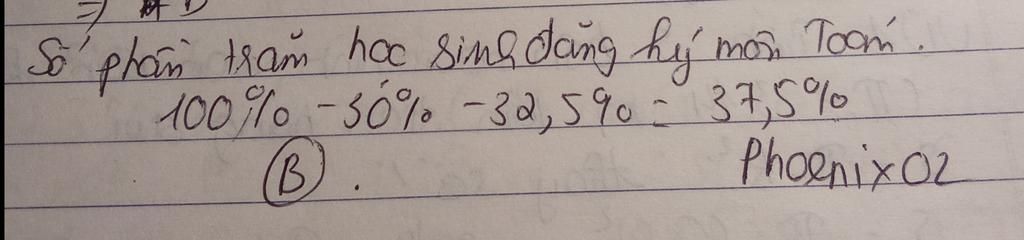 Số phần trăm học sinh đăng ký môn Toán.
100% - 30% - 32,5% = 37,5%
B.
Phoenix02